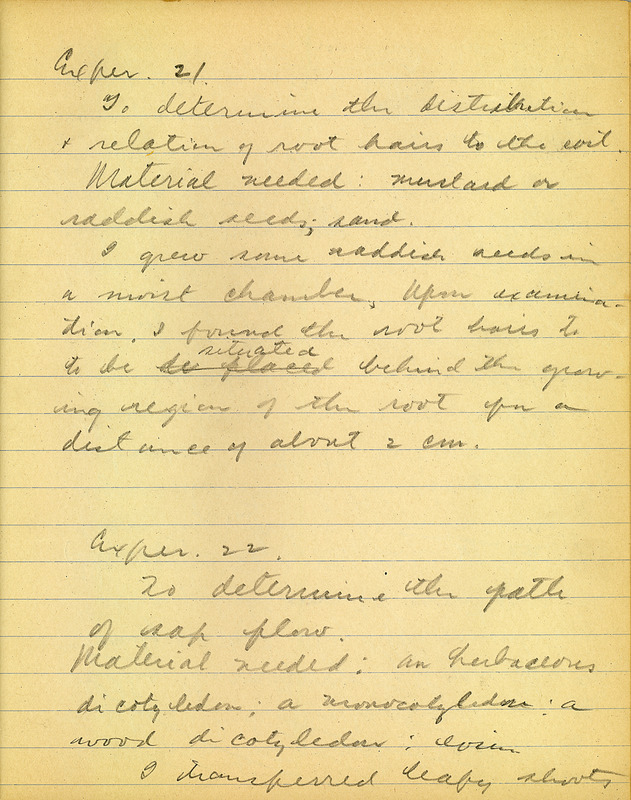 Exper. 21.
To determine the distribution
& relation of root hairs to the soil.
Material needed: mustard or
raddish seeds; sand.
I grew some raddish seeds in
a moist chamber. Upon examina-
tion, I found the root hairs to
situated
to be be placed behind the grow-
ing region of the root for a
distance of about 2 cm.
Exper. 22.
To determine the path
of sap flow.
Material needed: an herbaceous
dicotyledon; a monocotyledon; a
wood dicotyledon; eosin
I transferred leafy shoots